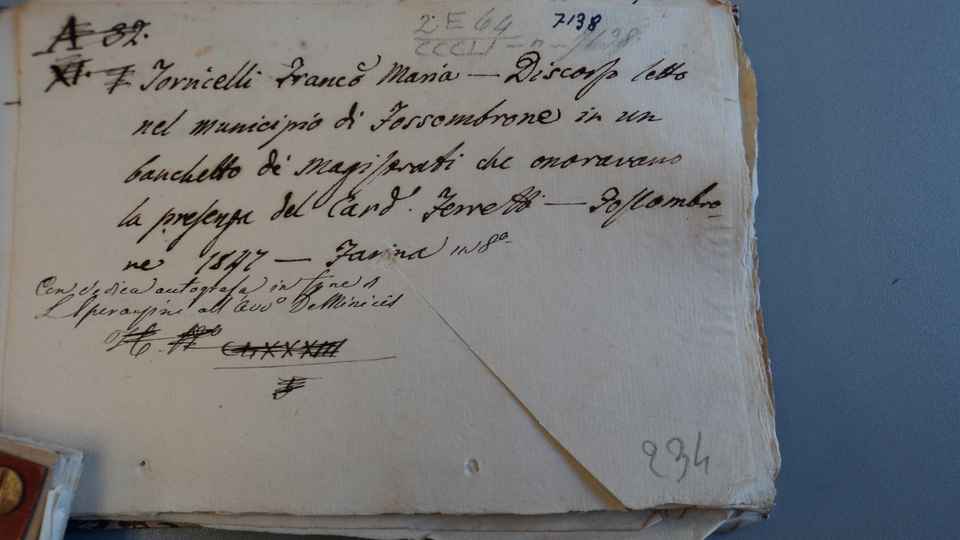 A 32.
2. E 64 7138
CCCLI - n - 7138
XI. I Torricelli Franco Maria — Discorso letto
nel municipio di Fossombrone in un
banchetto di magistrati che onoravano
la presenza del Card. Ferretti — Fossombro-
ne 1847 — Farina in 8º
Con dedica autografa in fine
Speranzini all'Avvº DeMinicis
CCLXXXIII
234